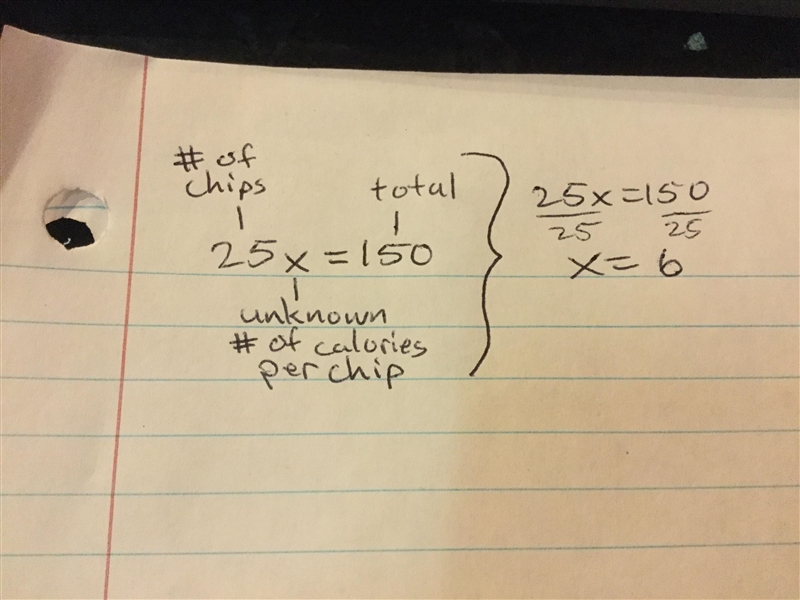 # of
chips
total
25x = 150
unknown
# of calories
per chip
25x = 150
25 25
x = 6